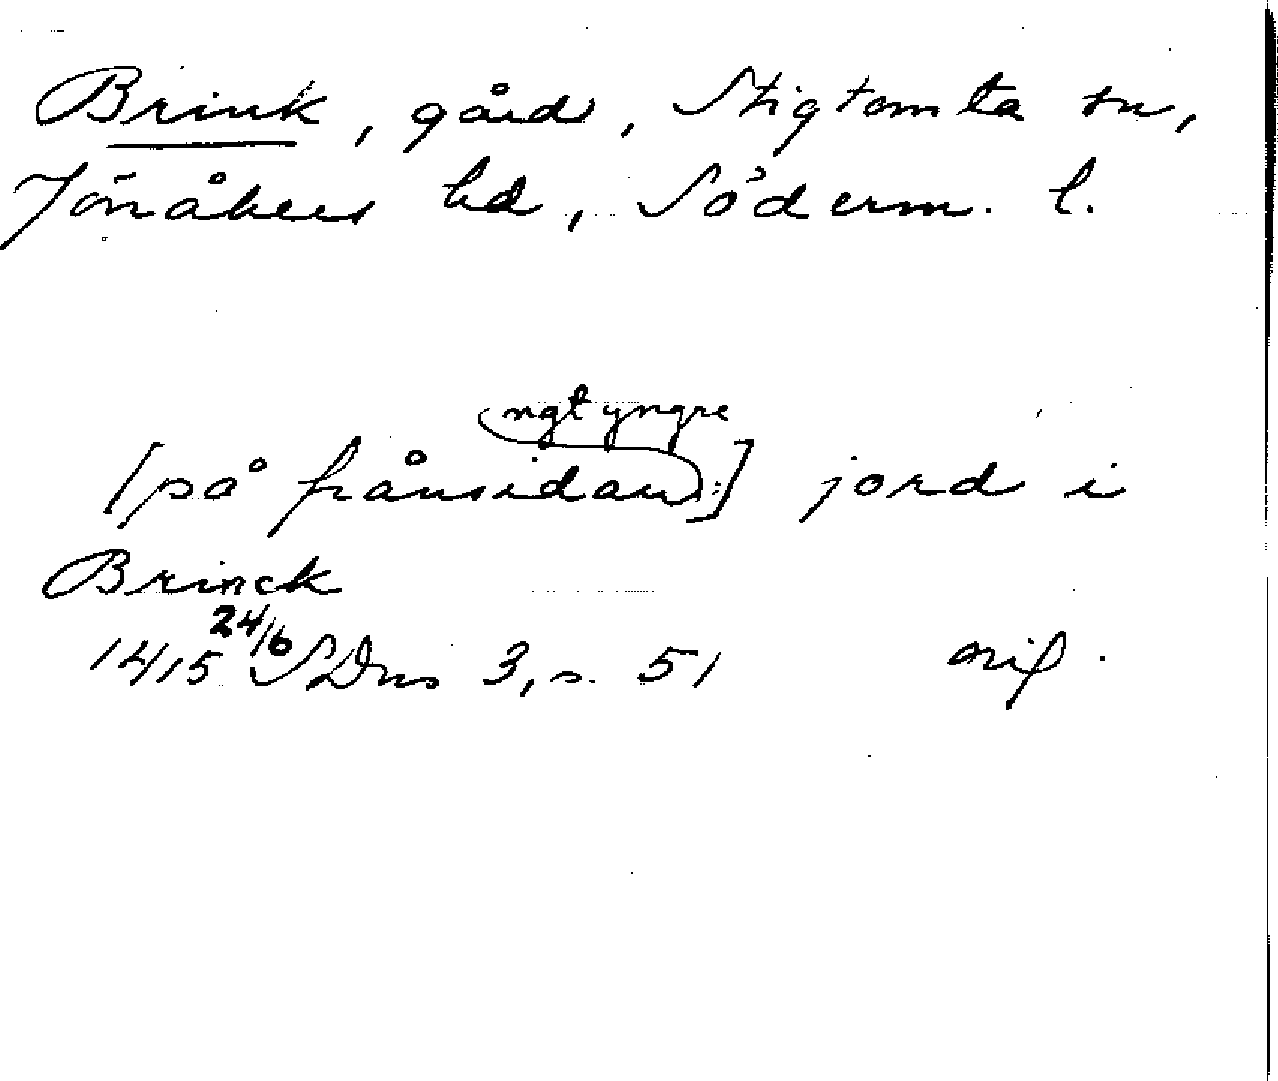 Brink, gård, Stigtomta sn,
Jönåkers hd, Söderm. l.
ngt yngre
[på frånsidan:] jord i
Brinck
1415 24/6 SDns 3, s. 51